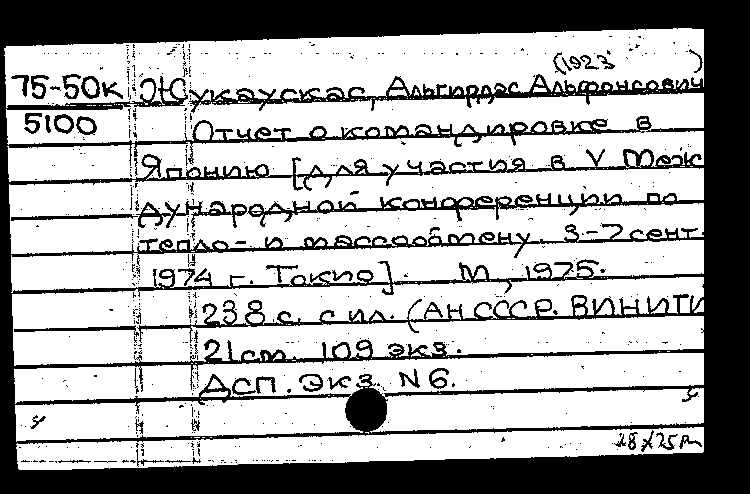 (1923 )
75-50к Жукаускас, Альгирдас Альфонсович
5100 Отчет о командировке в
Японию [для участия в V Меж
дународной конференции по
тепло- и массообмену. 3-7 сент.
1974 г. Токио]. М., 1975.
238 с. с ил. (АН СССР. ВИНИТИ
21 см. 109 экз.
ДСП. Экз. N 6.